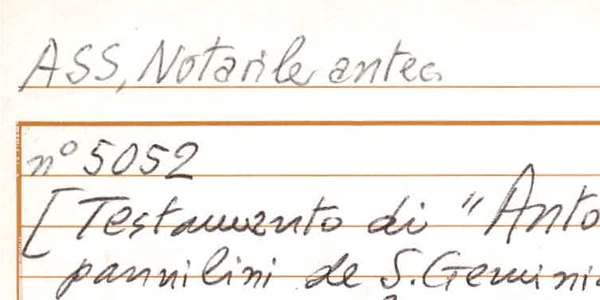 ASS, Notarile antec.
n° 5052
[Testamento di "Anto
pannilini de S. Gemini